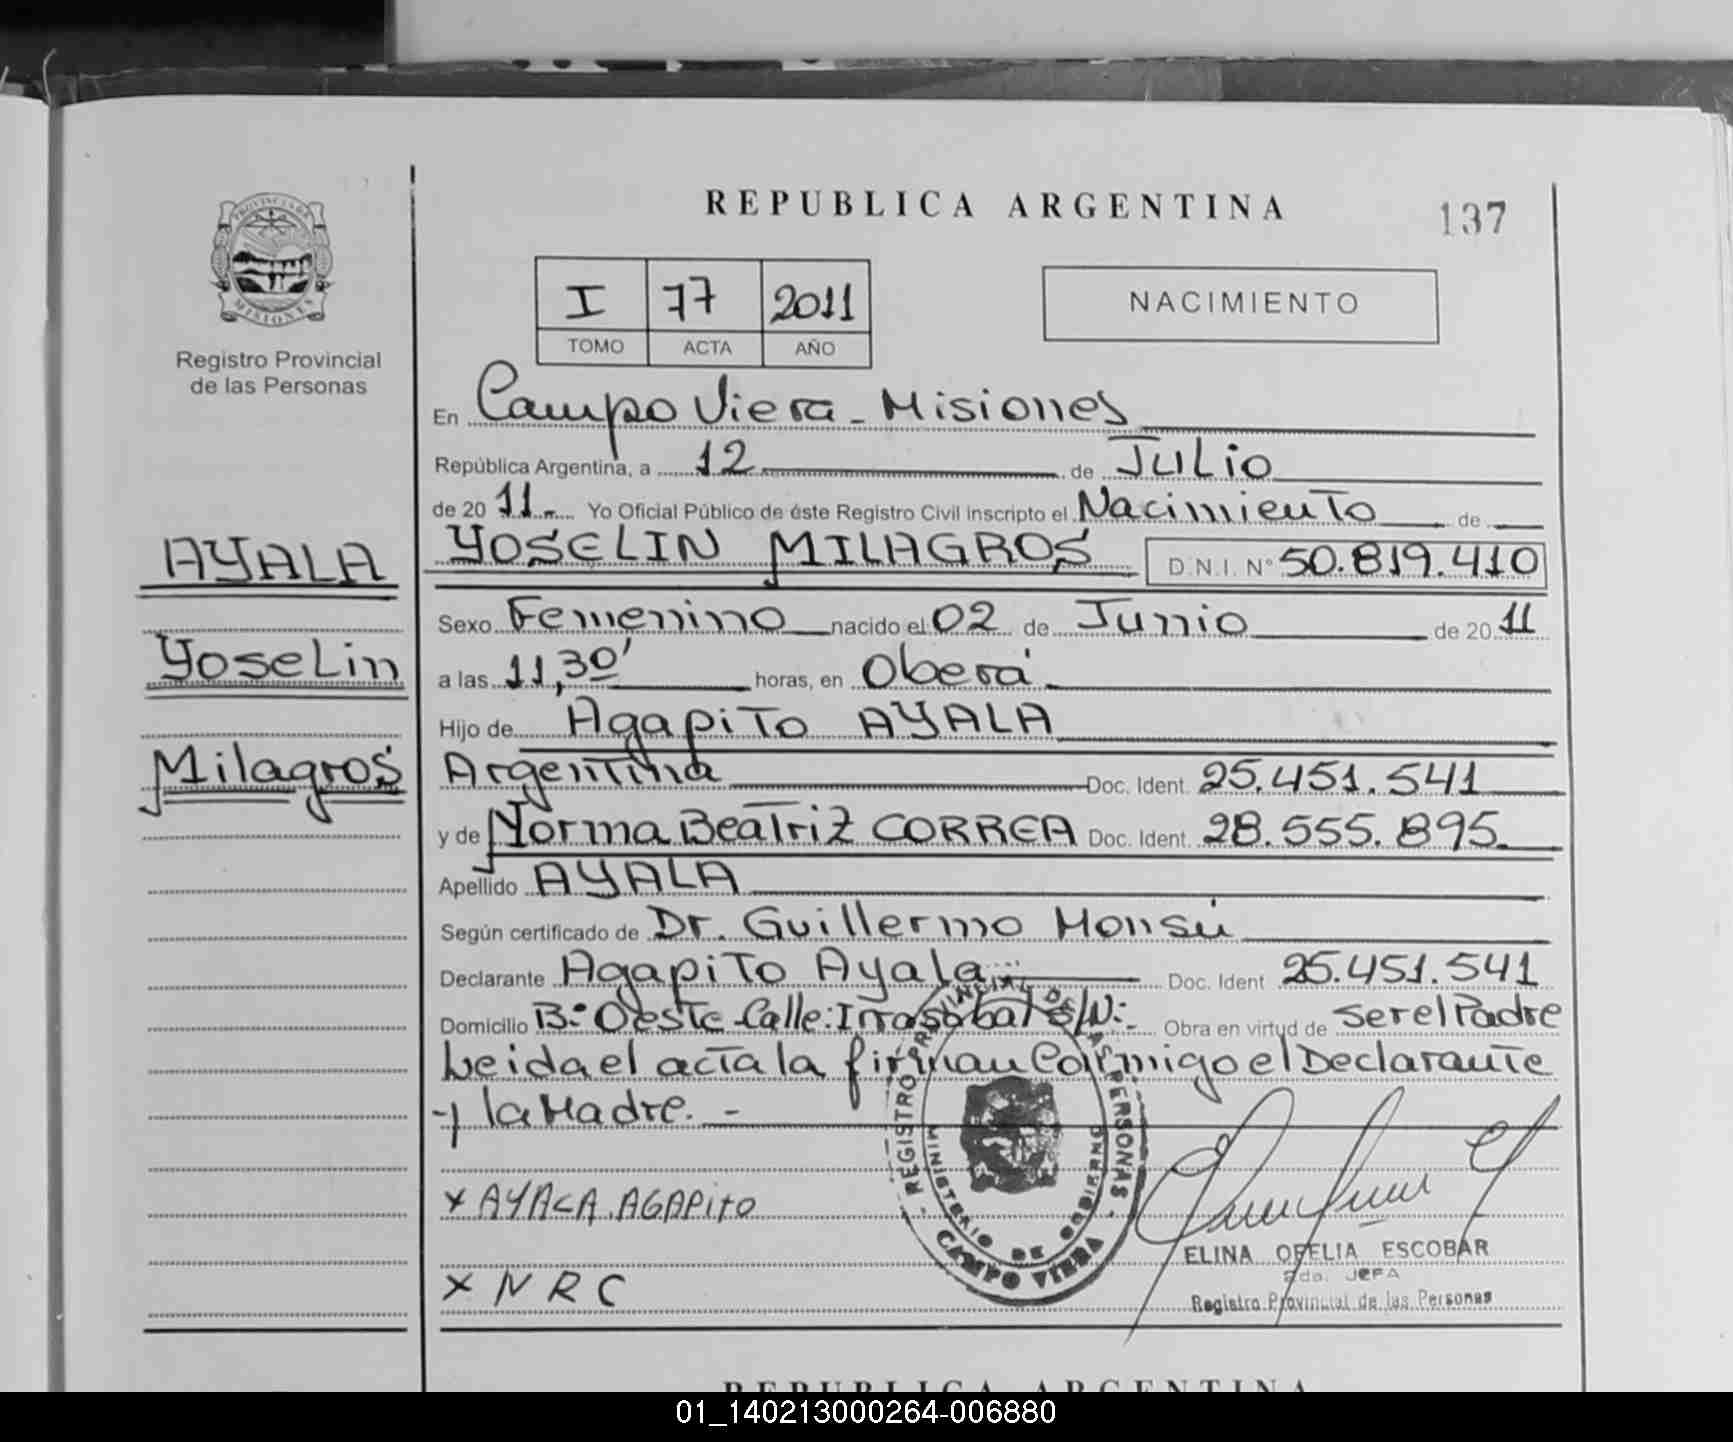 REPUBLICA ARGENTINA
137
PROVINCIA DE
MISIONES
Registro Provincial
de las Personas
I 77 2011
TOMO ACTA AÑO
NACIMIENTO
En Campo Viera - Misiones
República Argentina, a 12 de Julio
de 20 11.- Yo Oficial Público de éste Registro Civil inscripto el Nacimiento de
AYALA
Yoselin
Milagros
YOSELIN MILAGROS D.N.I. N° 50.819.410
Sexo Femenino nacido el 02 de Junio de 20 11
a las 11,30' horas, en Oberá
Hijo de Agapito AYALA
Argentina Doc. Ident. 25.451.541
y de Norma Beatriz CORREA Doc. Ident. 28.555.895.
Apellido AYALA
Según certificado de Dr. Guillermo Monsú
Declarante Agapito Ayala Doc. Ident 25.451.541
Domicilio B:° Oeste Calle: S/N:- Obra en virtud de ser el Padre
Leida el acta la firman Conmigo el Declarante
y la Madre. -
x AYALA. AGAPito
x N R C
REGISTRO PROVINCIAL DE LAS PERSONAS
MINISTERIO DE GOBIERNO
CAMPO VIERA
ELINA OFELIA ESCOBAR
2da. JEFA
Registro Provincial de las Personas
REPUBLICA ARGENTINA
01_140213000264-006880